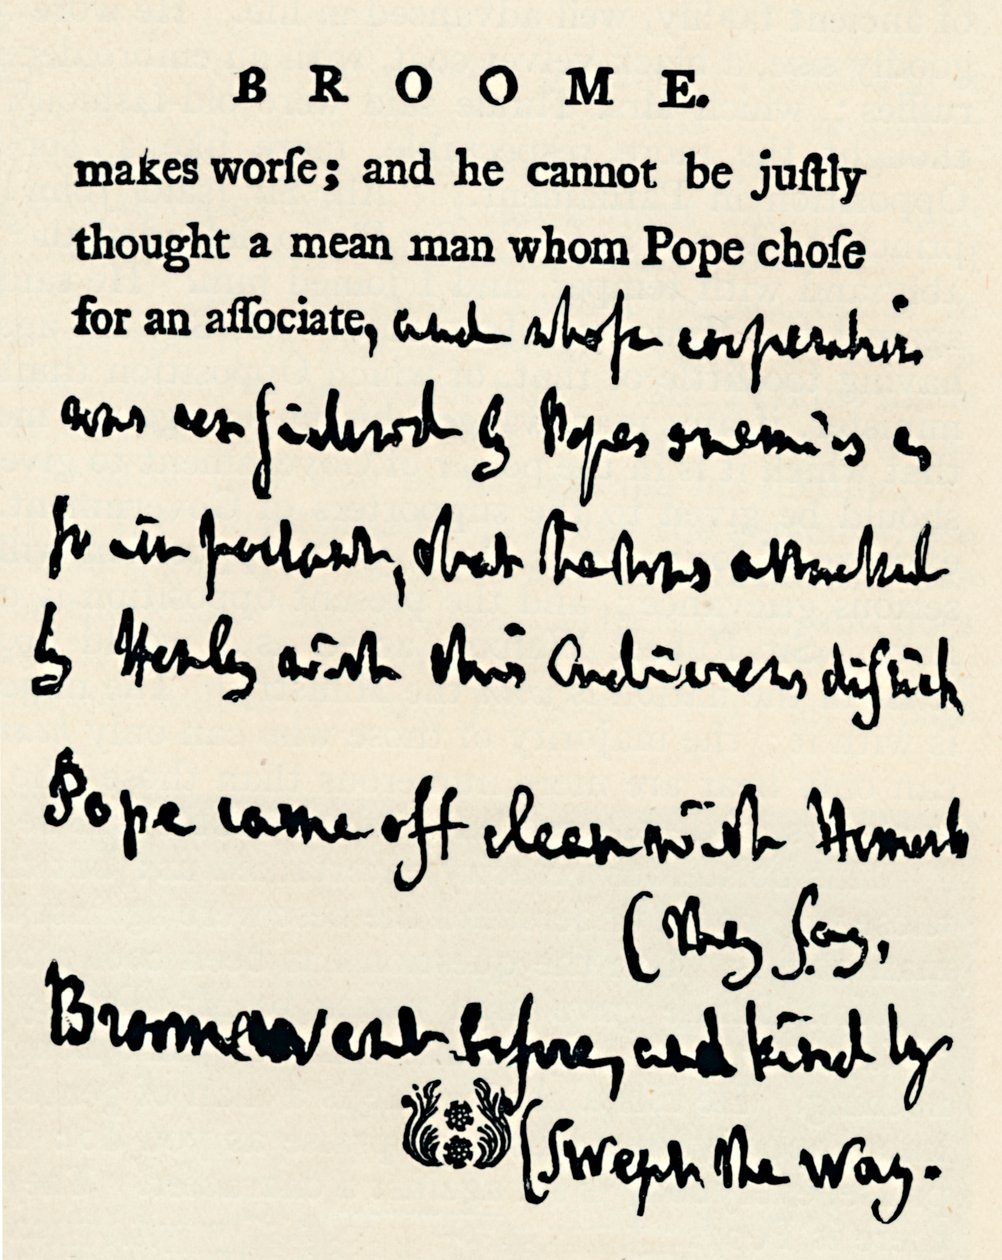 BROOME.
makes worſe; and he cannot be juſtly
thought a mean man whom Pope choſe
for an aſſociate, and whoſe cooperation
was conſidered by Popes enemies as
ſo important, that he was attacked
by Henley with this ludicrous diſtich
Pope came off clean with Homer
(they ſay,
Broome went before, and kindly
(ſwept the way.